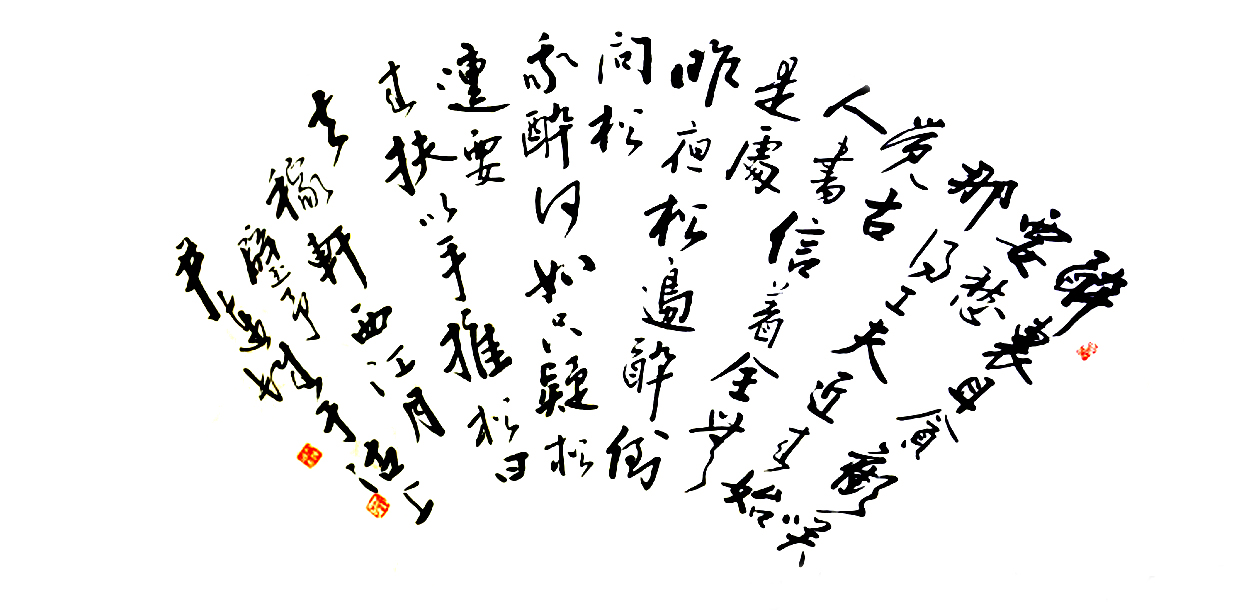 醉裏且貪歡笑
要愁
那得工夫近来始
觉古
人書信着全無
是處
昨夜松邊醉倒
問松
我醉何如只疑松
要
来扶以手推松曰
去
稼軒西江月
于滬上